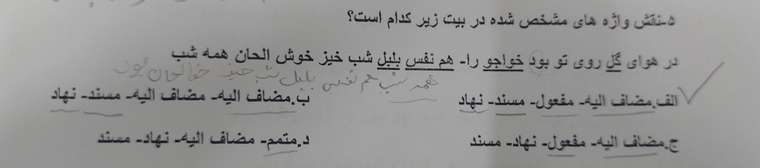 ۵-نقش واژه های مشخص شده در بیت زیر کدام است؟
در هوای گل روی تو بود خواجو را- هم نفس بلبل شب خیز خوش الحان همه شب
همه شب هم نفس بلبل شب خیز خوش الحان بود
الف.مضاف الیه- مفعول- مسند- نهاد ب.مضاف الیه- مضاف الیه- مسند- نهاد
ج.مضاف الیه- مفعول- نهاد- مسند د.متمم- مضاف الیه- نهاد- مسند